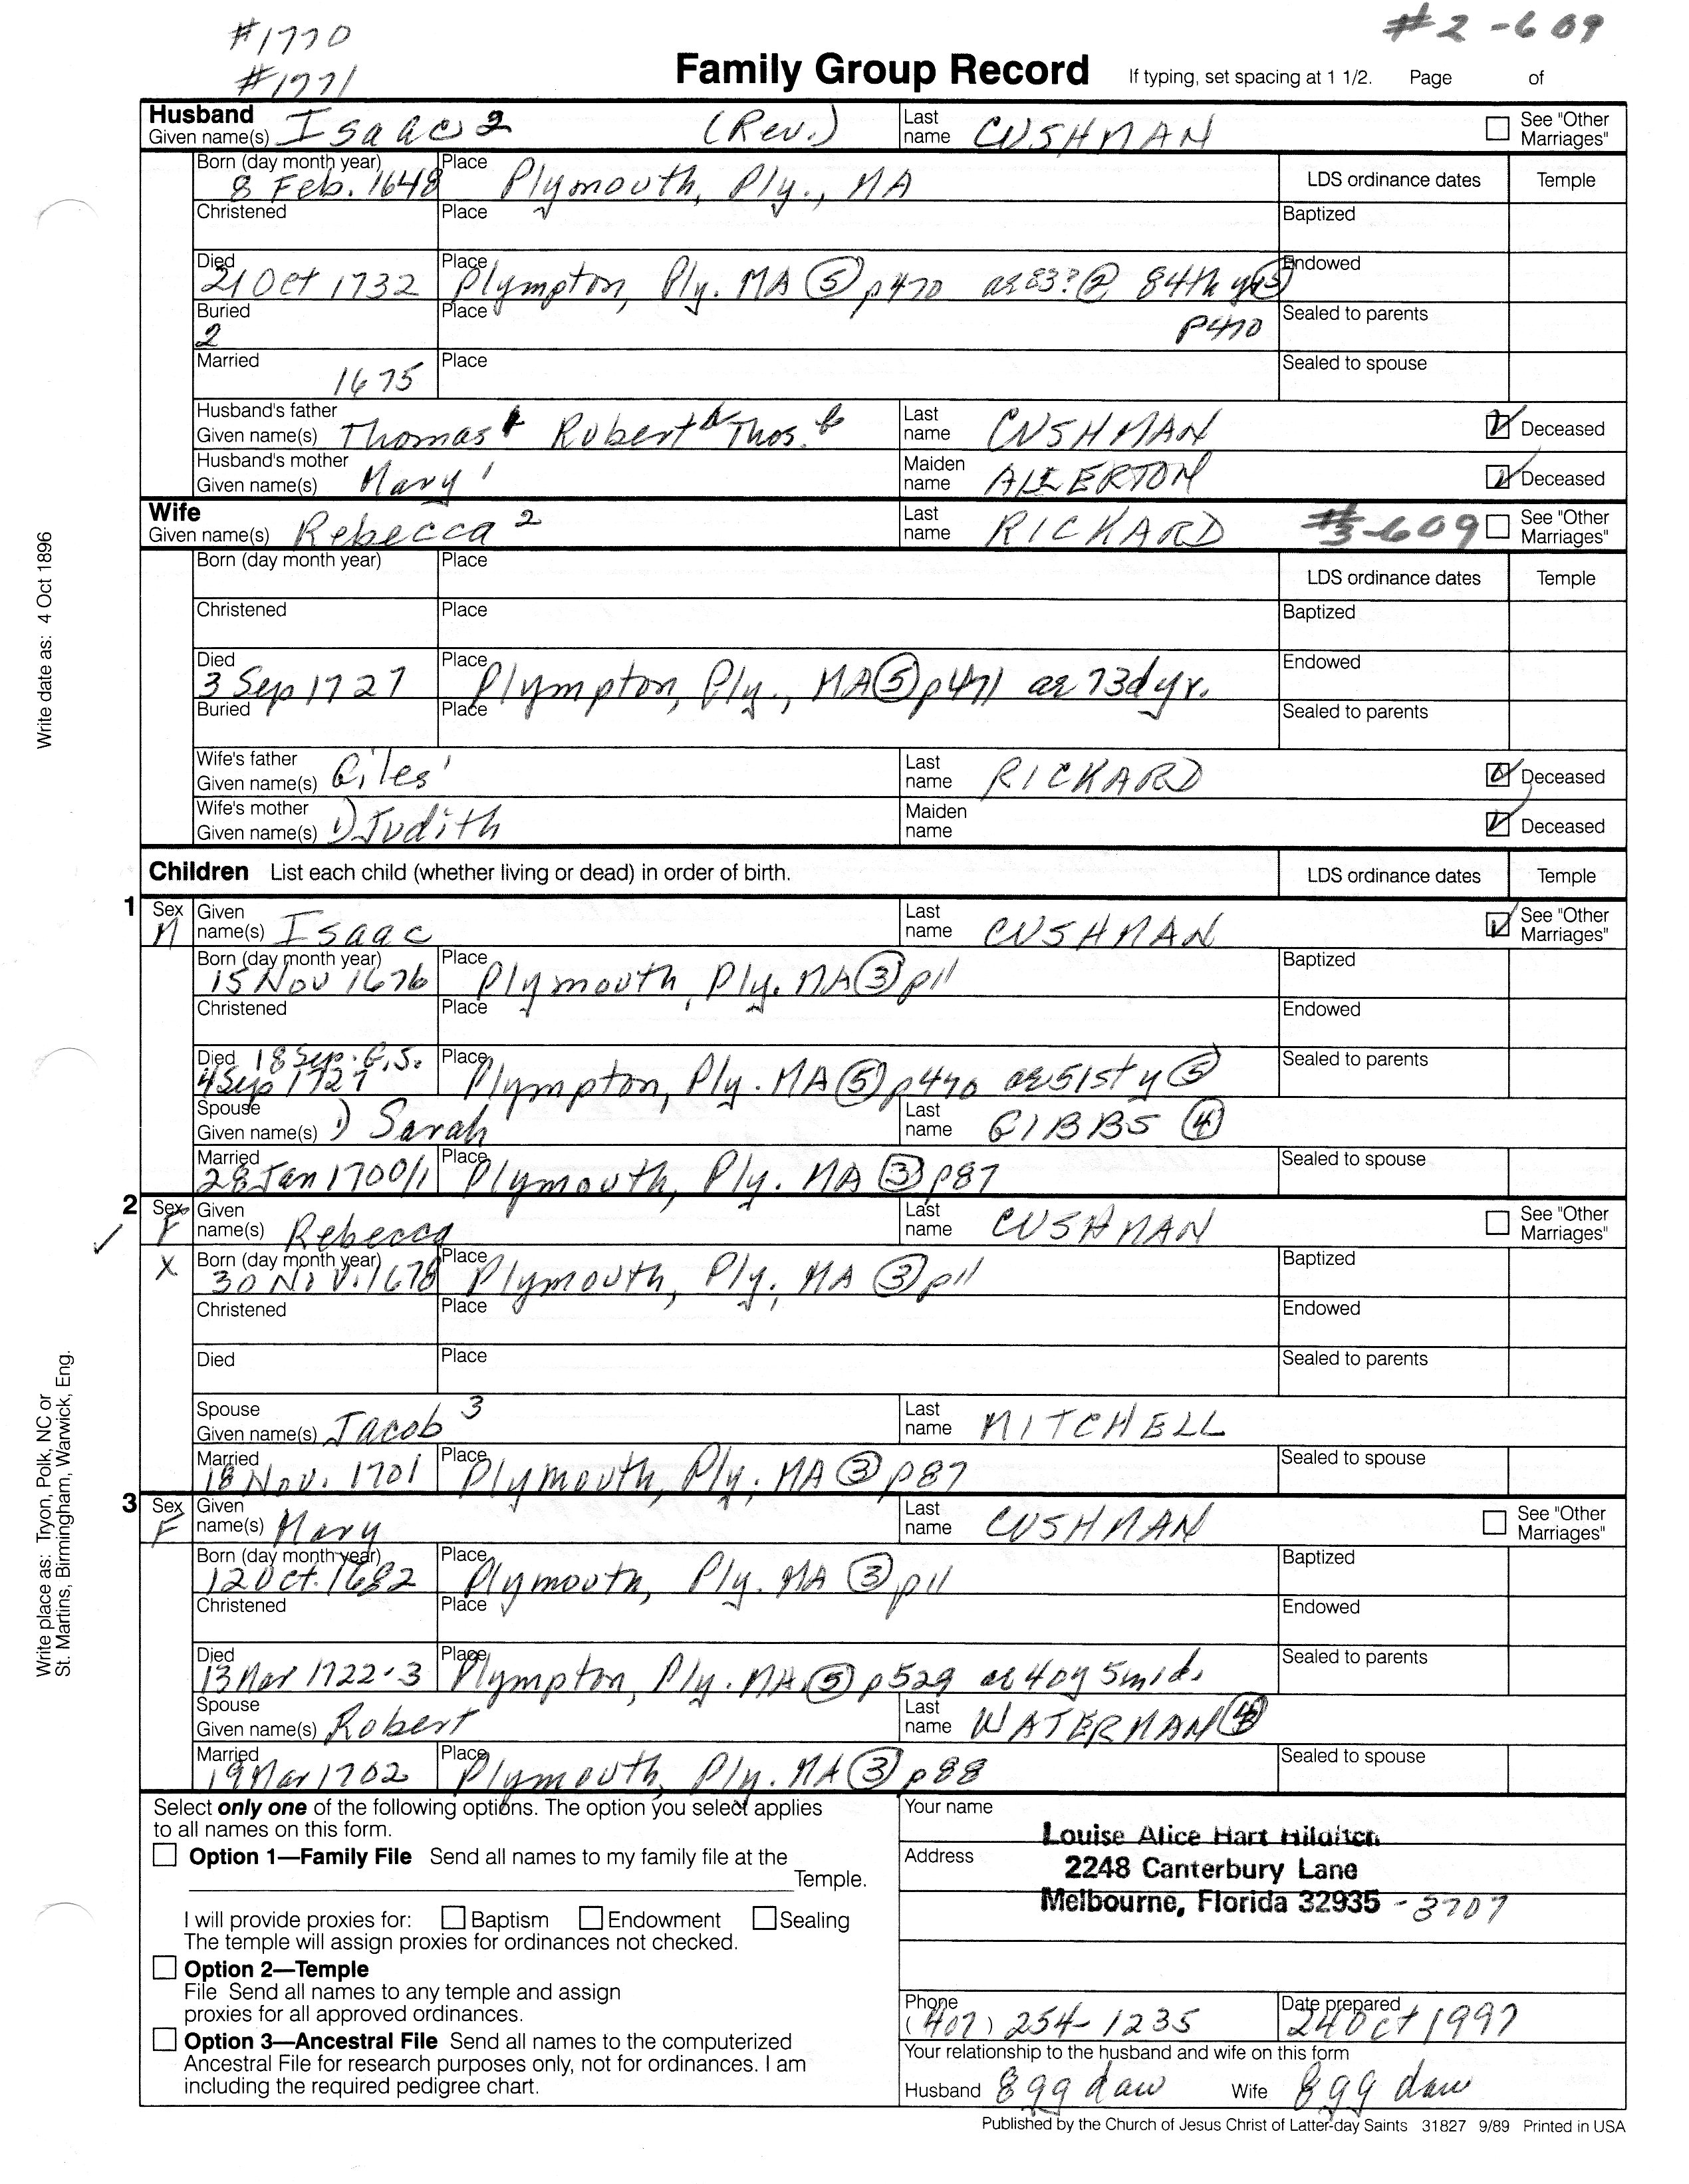 #1770
#1771
#2-609
Family Group Record If typing, set spacing at 1 1/2. Page of
Husband
Given name(s) Isaac 2 (Rev.) Last name CUSHMAN See "Other Marriages"
Born (day month year) 8 Feb. 1648 Place Plymouth, Ply., MA LDS ordinance dates Temple
Christened Place Baptized
Died 21 Oct 1732 Place Plympton, Ply. MA (5) p470 ae 83? @ 84th y (5) Endowed
Buried 2 Place p470 Sealed to parents
Married 1675 Place Sealed to spouse
Husband's father Given name(s) Thomas Robert Thos. Last name CUSHMAN Deceased
Husband's mother Given name(s) Mary 1 Maiden name ALLERTON Deceased
Wife
Given name(s) Rebecca 2 Last name RICKARD #3-609 See "Other Marriages"
Born (day month year) Place LDS ordinance dates Temple
Christened Place Baptized
Died 3 Sep 1727 Place Plympton, Ply., MA (5) p471 ae 73d yr. Endowed
Buried Place Sealed to parents
Wife's father Given name(s) Giles 1 Last name RICKARD Deceased
Wife's mother Given name(s) 1) Judith Maiden name Deceased
Children List each child (whether living or dead) in order of birth. LDS ordinance dates Temple
1 Sex M Given name(s) Isaac Last name CUSHMAN See "Other Marriages"
Born (day month year) 15 Nov 1676 Place Plymouth, Ply. MA (3) p11 Baptized
Christened Place Endowed
Died 18 Sep. G.S. 4 Sep 1727 Place Plympton, Ply. MA (5) p470 ae 51st y (5) Sealed to parents
Spouse Given name(s) 1) Sarah Last name GIBBS (4)
Married 28 Jan 1700/1 Place Plymouth, Ply. MA (3) p87 Sealed to spouse
2 Sex F Given name(s) Rebecca Last name CUSHMAN See "Other Marriages"
X Born (day month year) 30 Nov. 1678 Place Plymouth, Ply. MA (3) p11 Baptized
Christened Place Endowed
Died Place Sealed to parents
Spouse Given name(s) Jacob 3 Last name MITCHELL
Married 18 Nov. 1701 Place Plymouth, Ply. MA (3) p87 Sealed to spouse
3 Sex F Given name(s) Mary Last name CUSHMAN See "Other Marriages"
Born (day month year) 12 Oct. 1682 Place Plymouth, Ply. MA (3) p11 Baptized
Christened Place Endowed
Died 13 Mar 1722-3 Place Plympton, Ply. MA. (5) p529 ae 40y 5m 1d. Sealed to parents
Spouse Given name(s) Robert Last name WATERMAN
Married 19 Mar 1702 Place Plymouth, Ply. MA (3) p88 Sealed to spouse
Select only one of the following options. The option you select applies
to all names on this form.
Option 1—Family File Send all names to my family file at the
Temple.
I will provide proxies for: Baptism Endowment Sealing
The temple will assign proxies for ordinances not checked.
Option 2—Temple
File Send all names to any temple and assign
proxies for all approved ordinances.
Option 3—Ancestral File Send all names to the computerized
Ancestral File for research purposes only, not for ordinances. I am
including the required pedigree chart.
Your name Louise Alice Hart Hilditch
Address 2248 Canterbury Lane
Melbourne, Florida 32935 -3707
Phone (407) 254-1235 Date prepared 24 Oct 1997
Your relationship to the husband and wife on this form
Husband 8 gg dau Wife 8 gg dau
Published by the Church of Jesus Christ of Latter-day Saints 31827 9/89 Printed in USA
Write date as: 4 Oct 1896
Write place as: Tryon, Polk, NC or
St. Martins, Birmingham, Warwick, Eng.